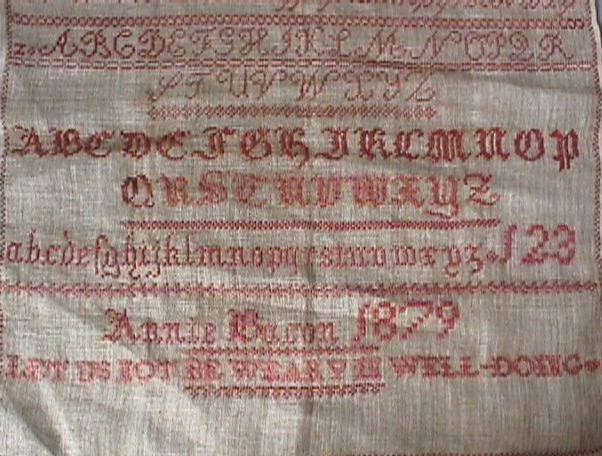 z..ABCDEFGHIKLMNOPQR
STUVWXYZ
ABCDEFGHIKLMNOP
QRSTUVWXYZ
abcdefghijklmnopqrstuvwxyz. 123
Annie 1879
LET US NOT BE WEARY IN WELL-DOING